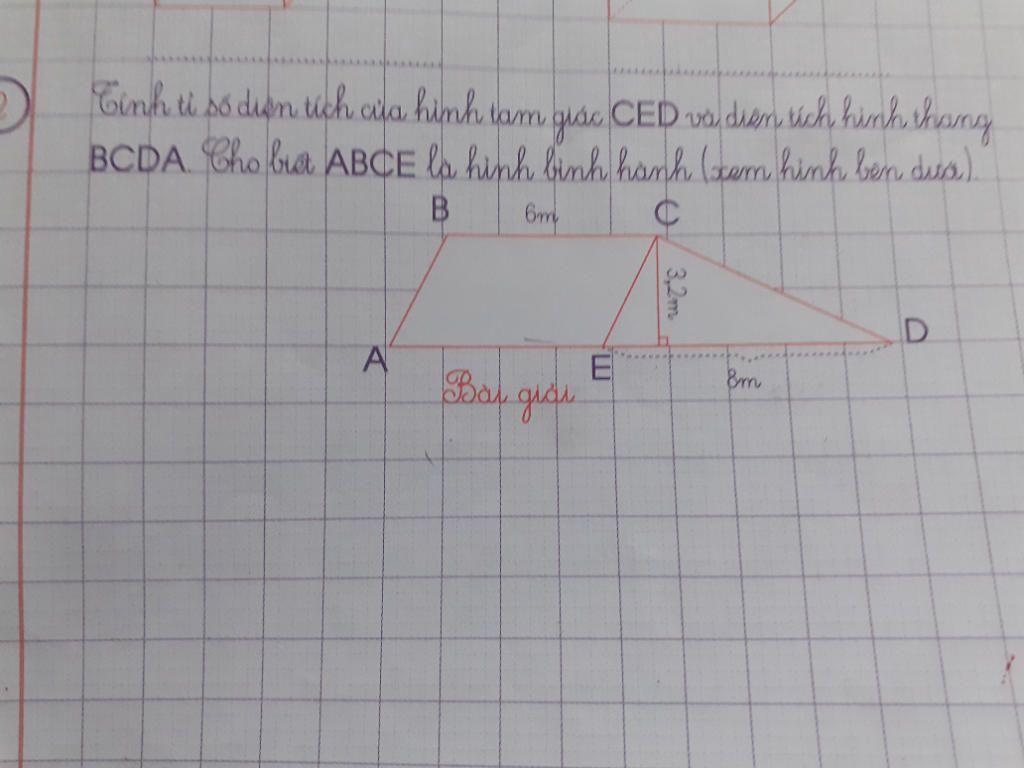 2
Tính tỉ số diện tích của hình tam giác CED và diện tích hình thang
BCDA. Cho biết ABCE là hình bình hành (xem hình bên dưới).
B 6m C
3,2m
A E D
8m
Bài giải